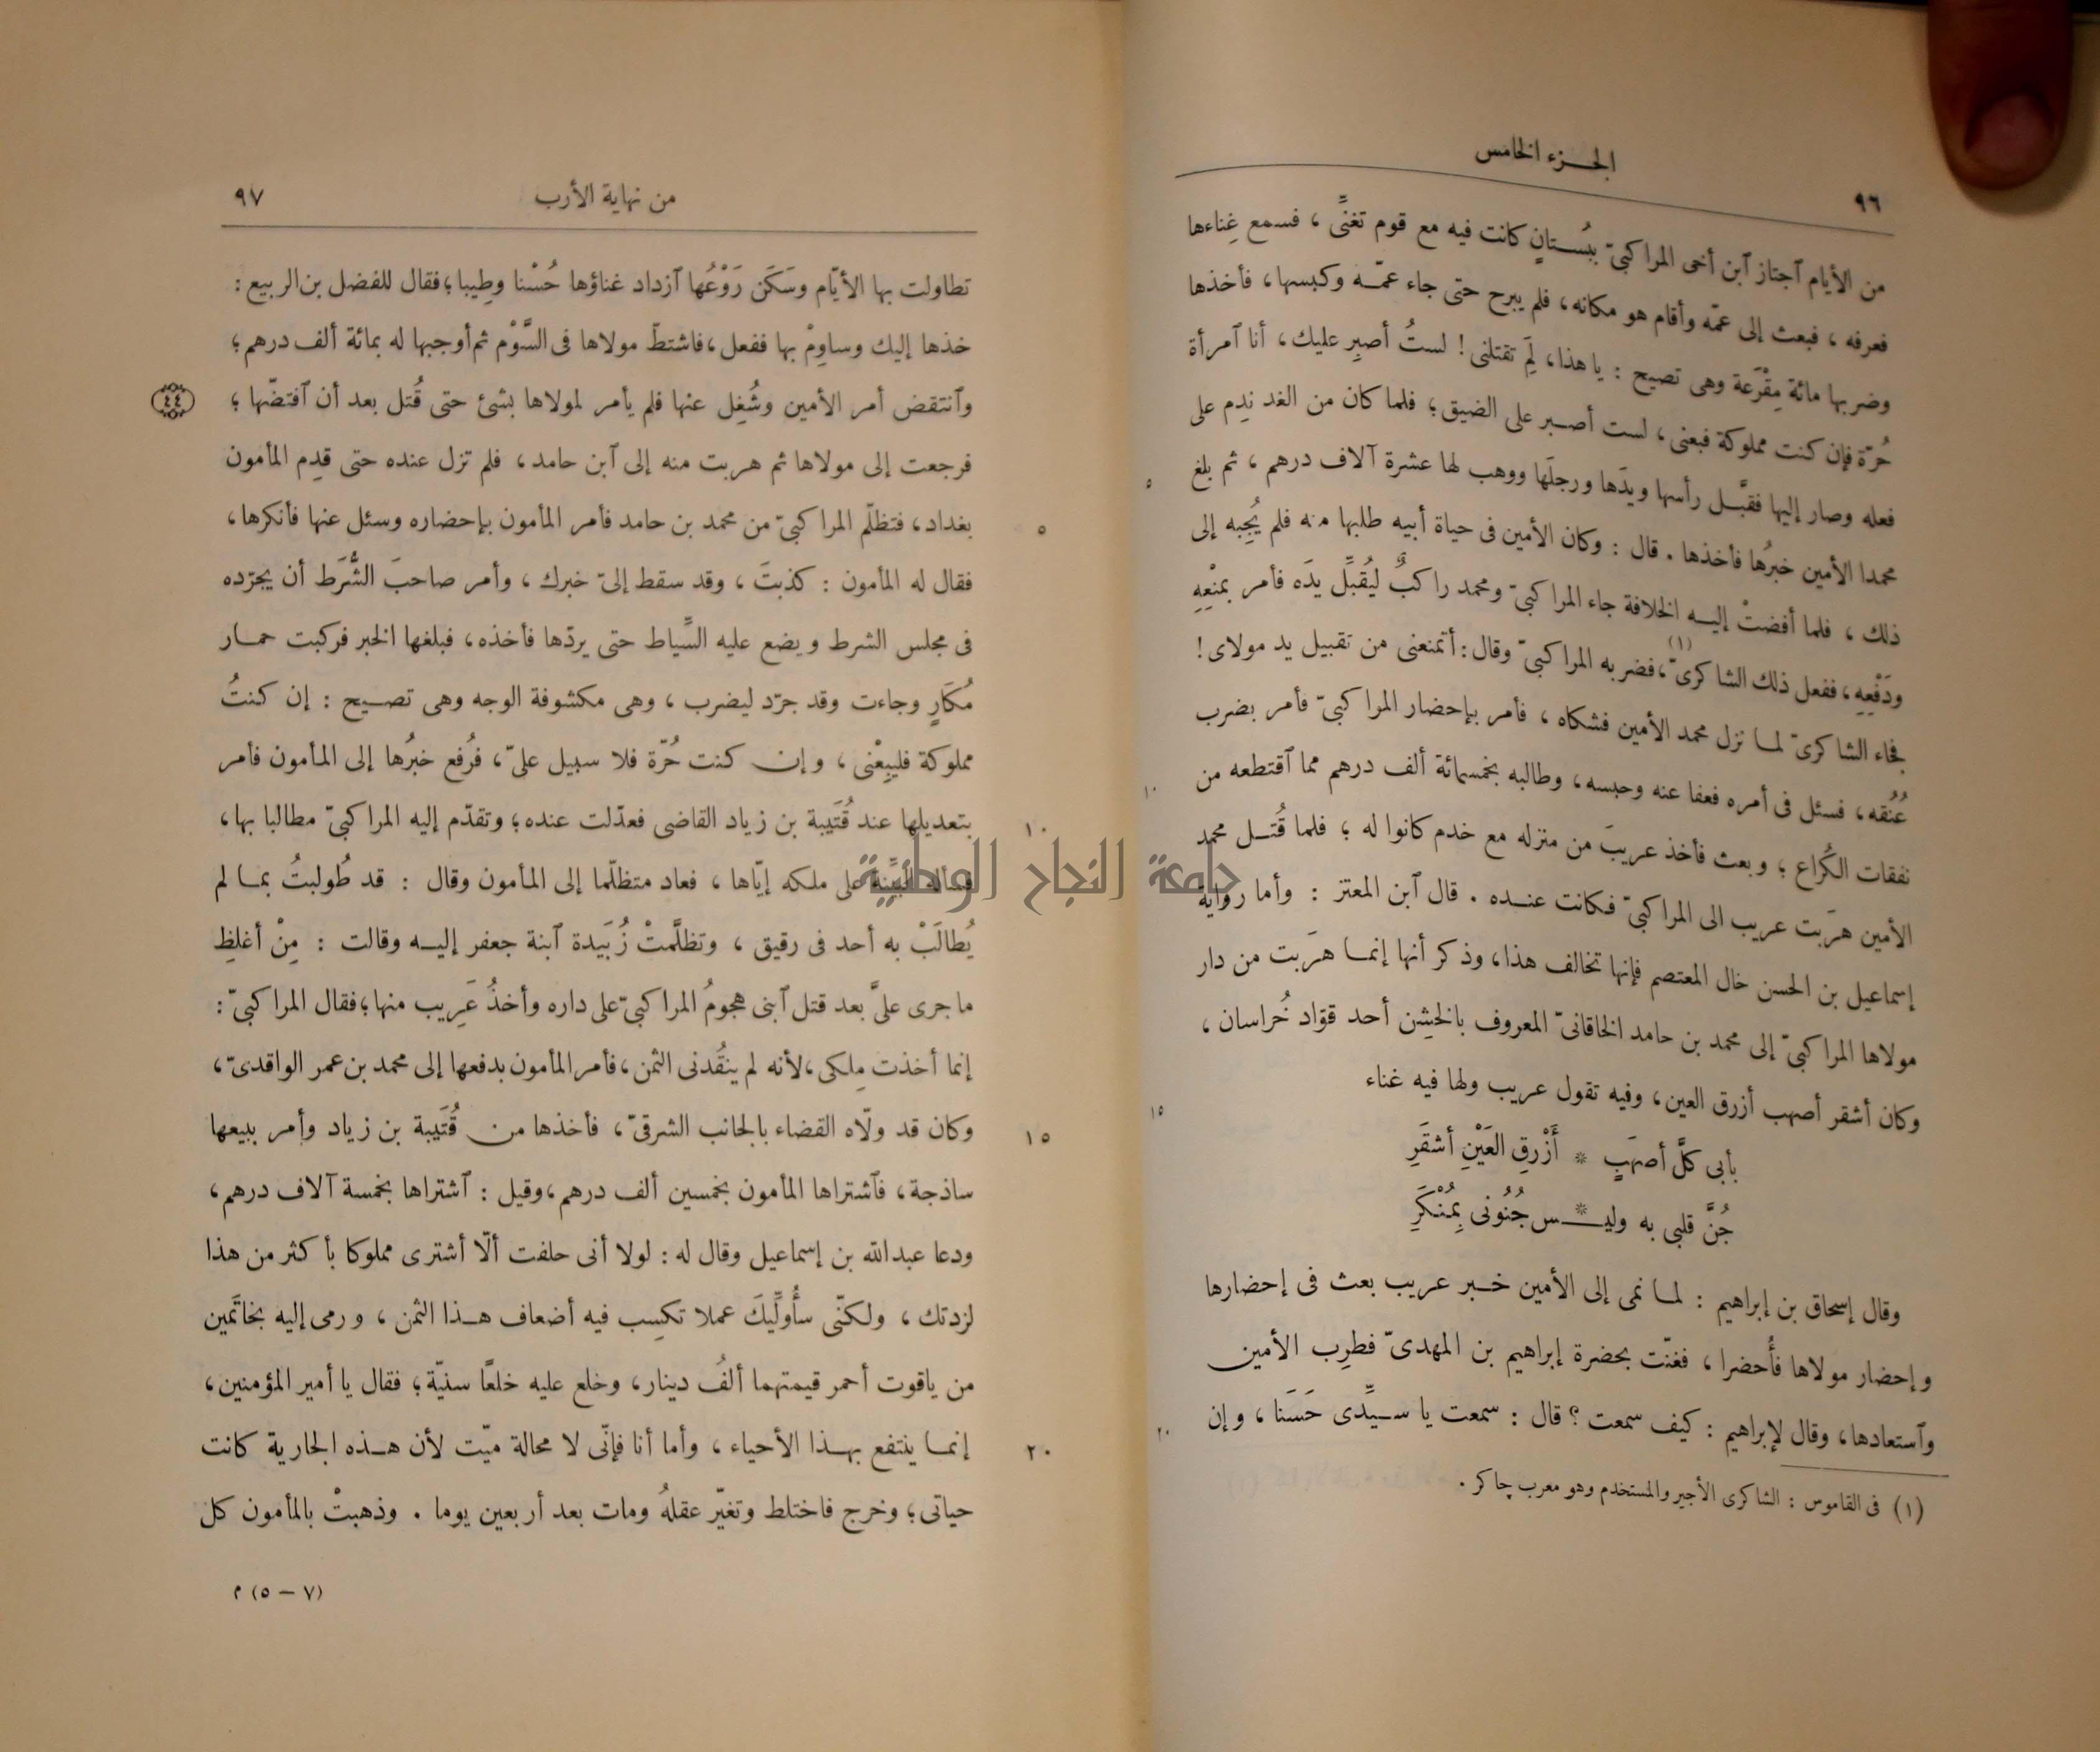 الجزء الخامس
٩٦
من الأيام آجتاز آبن أخى المراكبىّ ببُستانٍ كانت فيه مع قوم تغنِّى ، فسمع غِناءها
فعرفه ، فبعث إلى عمّه وأقام هو مكانه، فلم يبرح حتى جاء عمّه وكبسها، فأخذها
وضربها مائة مِقْرَعة وهى تصيح : يا هذا، لِمَ تقتلنى! لستُ أصبِر عليك، أنا آمرأة
حُرّة فإن كنت مملوكة فبعنى، لست أصبر على الضيق؛ فلما كان من الغد ندِم على
فعله وصار إليها فقبَّل رأسها ويدَها ورجلَها ووهب لها عشرة آلاف درهم ، ثم بلغ
٥
محمدا الأمين خبرُها فأخذها . قال : وكان الأمين فى حياة أبيه طلبها منه فلم يُجِبه إلى
ذلك ، فلما أفضتْ إليه الخلافة جاء المراكبىّ ومحمد راكبٌ ليُقبِّل يدَه فأمر بمنْعِهِ
ودَفْعِهِ، ففعل ذلك الشاكرىّ(١)، فضربه المراكبىّ وقال: أتمنعنى من تقبيل يد مولاى!
فجاء الشاكرىّ لما نزل محمد الأمين فشكاه ، فأمر بإحضار المراكبىّ فأمر بضرب
عُنُقه، فسئل فى أمره فعفا عنه وحبسه، وطالبه بخمسمائة ألف درهم مما آقتطعه من
١٠
نفقات الكُراع ؛ وبعث فأخذ عريبَ من منزله مع خدم كانوا له ؛ فلما قُتل محمد
الأمين هرَبت عريب الى المراكبىّ فكانت عنده . قال آبن المعتز : وأما رواية
إسماعيل بن الحسن خال المعتصم فإنها تخالف هذا، وذكر أنها إنما هرَبت من دار
مولاها المراكبىّ إلى محمد بن حامد الخاقانىّ المعروف بالخشِن أحد قوّاد خُراسان ،
وكان أشقر أصهب أزرق العين، وفيه تقول عريب ولها فيه غناء
١٥
بأبى كلَّ أصهَبٍ * أَزْرقِ العَيْنِ أشقَرِ
جُنَّ قلبى به وليـ * ـس جُنُونى بِمُنْكَرِ
وقال إسحاق بن إبراهيم : لما نمى إلى الأمين خبر عريب بعث فى إحضارها
وإحضار مولاها فأُحضرا ، فغنّت بحضرة إبراهيم بن المهدىّ فطرِب الأمين
وآستعادها، وقال لإبراهيم : كيف سمعت ؟ قال : سمعت يا سيِّدى حَسَنا ، وإن
٢٠
(١) فى القاموس : الشاكرى الأجير والمستخدم وهو معرب چاكر .
من نهاية الأرب
٩٧
تطاولت بها الأيّام وسَكَن رَوْعُها آزداد غناؤها حُسْنا وطِيبا؛ فقال للفضل بن الربيع :
خذها إليك وساوِمْ بها ففعل، فاشتطّ مولاها فى السَّوْم ثم أوجبها له بمائة ألف درهم؛
وآنتقض أمر الأمين وشُغِل عنها فلم يأمر لمولاها بشئ حتى قُتل بعد أن آفتضّها ؛
٤٤
فرجعت إلى مولاها ثم هربت منه إلى آبن حامد، فلم تزل عنده حتى قدِم المأمون
بغداد، فتظلّم المراكبىّ من محمد بن حامد فأمر المأمون بإحضاره وسئل عنها فأنكرها،
٥
فقال له المأمون : كذبتَ ، وقد سقط إلىّ خبرك ، وأمر صاحبَ الشُّرَط أن يجرّده
فى مجلس الشرط ويضع عليه السِّياط حتى يردّها فأخذه، فبلغها الخبر فركبت حمار
مُكَارٍ وجاءت وقد جرّد ليضرب ، وهى مكشوفة الوجه وهى تصيح : إن كنتُ
مملوكة فليبِعْنى ، وإن كنت حُرّة فلا سبيل علىّ، فرُفع خبرُها إلى المأمون فأمر
بتعديلها عند قُتَيبة بن زياد القاضى فعدّلت عنده؛ وتقدّم إليه المراكبىّ مطالبا بها،
١٠
فسأله البيِّنة على ملكه إيّاها ، فعاد متظلّما إلى المأمون وقال : قد طُولبتُ بما لم
جامعة النجاح الوطنية
يُطالَبْ به أحد فى رقيق ، وتظلَّمتْ زُبَيدة آبنة جعفر إليه وقالت : مِنْ أغلظِ
ما جرى علىَّ بعد قتل آبنى هجومُ المراكبىّ على داره وأخذُ عَرِيب منها؛ فقال المراكبىّ :
إنما أخذت مِلكى، لأنه لم ينقُدنى الثمن، فأمر المأمون بدفعها إلى محمد بن عمر الواقدىّ،
وكان قد ولّاه القضاء بالجانب الشرقىّ، فأخذها من قُتَيبة بن زياد وأمر ببيعها
١٥
ساذجة، فآشتراها المأمون بخمسين ألف درهم، وقيل : آشتراها بخمسة آلاف درهم،
ودعا عبدالله بن إسماعيل وقال له : لولا أنى حلفت ألّا أشترى مملوكا بأكثر من هذا
لزدتك ، ولكنّى سأُولِّيكَ عملا تكسِب فيه أضعاف هذا الثمن ، ورمى إليه بخاتَمين
من ياقوت أحمر قيمتهما ألفُ دينار، وخلع عليه خلعًا سنيّة؛ فقال يا أمير المؤمنين،
إنما ينتفع بهذا الأحياء ، وأما أنا فإنّى لا محالة ميّت لأن هذه الجارية كانت
٢٠
حياتى؛ وخرج فاختلط وتغيّر عقلهُ ومات بعد أربعين يوما . وذهبتْ بالمأمون كل
(٧ – ٥) م